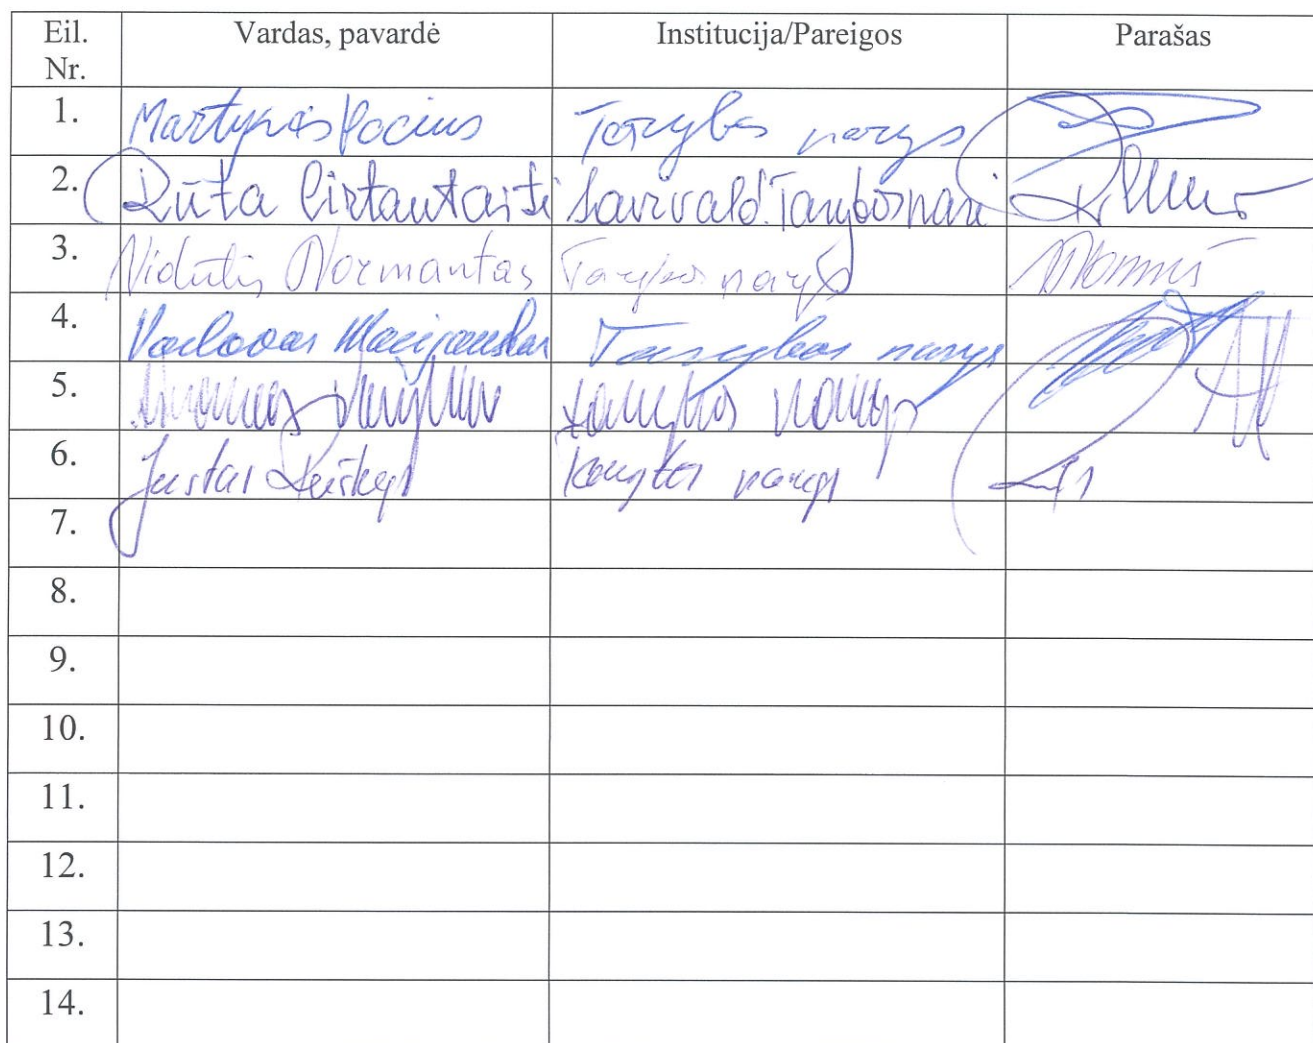 Eil. Nr. Vardas, pavardė Institucija/Pareigos Parašas
1. Martynas Pocius Tarybos narys
2. Rūta Cirtautaitė Savivald. Tarybos narė
3. Vidutis Normantas Tarybos narys
4. Vaclovas Macijauskas Tarybos narys
5. tarybos narys
6. Justas Ruškys tarybos narys
7.
8.
9.
10.
11.
12.
13.
14.